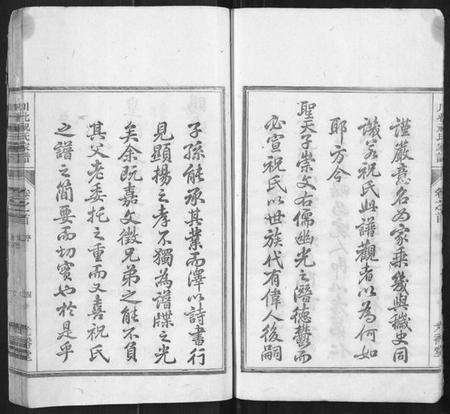 謹嚴意名為家乘幾與穢史同
譏若祝氏此譜觀者以為何如
耶方今
聖天子崇文右儒幽光之潛德鬱而
必宣祝氏以世族代有偉人後嗣
子孫能承其業而澤以詩書行
見顯揚之孝不獨為譜牒之光
矣余既嘉文徵兄弟之能不負
其父老委托之重而又喜祝氏
之譜之简要而切實也於是乎
川北祝氏家譜
卷之首